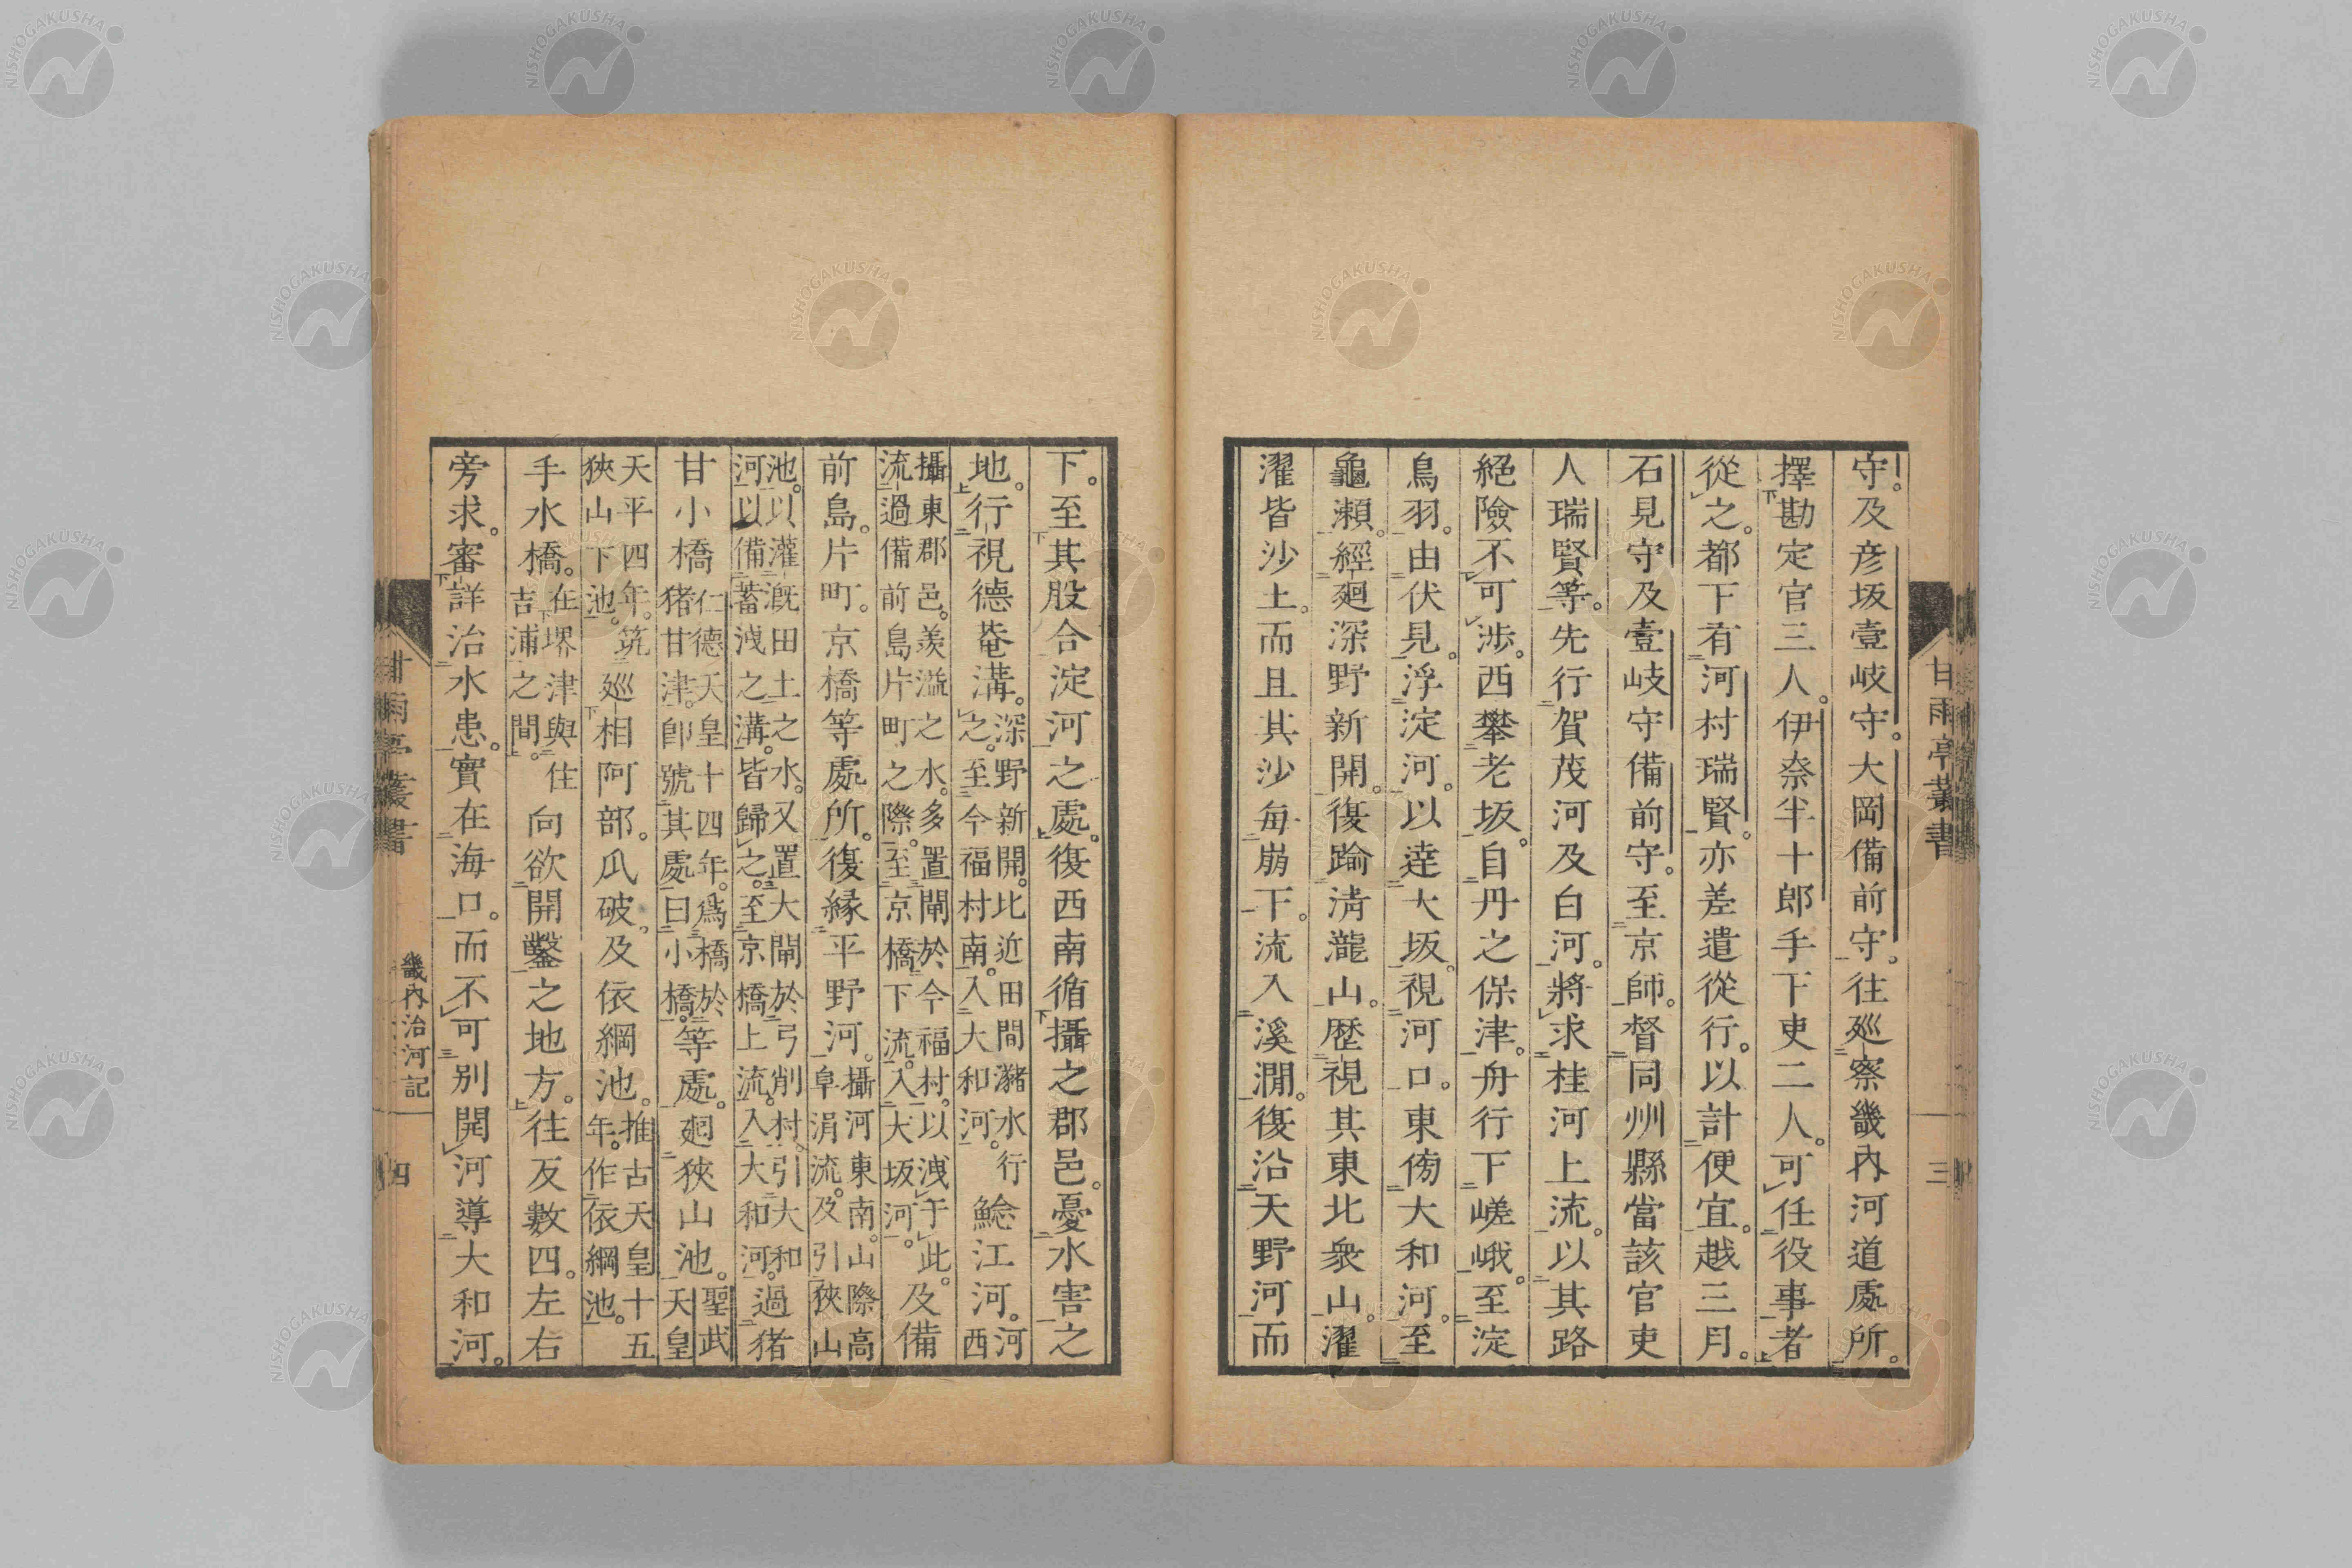 甘雨亭叢書
三
守。及彦坂壹岐守。大岡備前守。往廵察畿內河道處所。
擇勘定官三人。伊奈半十郎手下吏二人。可任役事者
從之。都下有河村瑞賢。亦差遣從行。以計便宜。越三月。
石見守及壹岐守備前守。至京師。督同州縣當該官吏
人瑞賢等。先行賀茂河及白河。將求桂河上流。以其路
絕險不可涉。西攀老坂。自丹之保津。舟行下嵯峨。至淀
鳥羽。由伏見。浮淀河。以達大坂。視河口。東傍大和河。至
龜瀨。經廻深野新開。復踰淸瀧山。歷視其東北衆山。濯
濯皆沙土。而且其沙每崩下。流入溪澗。復沿天野河而
下。至其股合淀河之處。復西南循攝之郡邑。憂水害之
地。行視德菴溝。深野新開。北近田間瀦水行之。至今福村南。入大和河。鯰江河。河西
攝東郡邑。羨溢之水。多置閘於今福村。以洩于此。流過備前島片町之際。至京橋下流。入大坂河。及備
前島。片町。京橋等處所。復緣平野河。攝河東南。山際高阜涓流。及引狹山
池。以灌漑田土之水。又置大閘於弓削村。引大和河。以備蓄淺之溝。皆歸之。至京橋上流。入大和河。過猪
甘小橋仁德天皇十四年。爲橋於猪甘津。卽號其處曰小橋。等處。廻狹山池。聖武天皇
天平四年。筑狹山下池。廵相阿部。瓜破。及依綱池。推古天皇十五年。作依綱池。
手水橋。在堺津與住吉浦之間。向欲開鑿之地方。往反數四。左右
旁求。審詳治水患。實在海口。而不可別開河導大和河。
甘雨亭叢書
畿內治河記
四
NISHOGAKUSHA